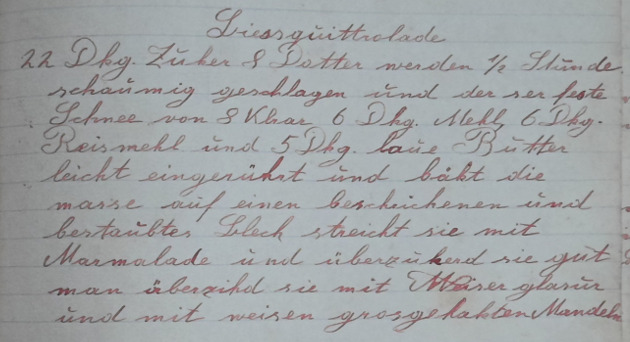 Liessquittrolade
22 Dkg. Zuker 8 Dotter werden 1/2 Stunde
schaumig geschlagen und der ser feste
Schnee von 8 Klar 6 Dkg. Mehl, 6 Dkg.
Reismehl und 5 Dkg. laue Butter
leicht eingerührt und bäkt die
masse auf einen bescheichenen und
bestaubtes Blech streicht sie mit
Marmalade und überzukerd sie gut
man überzihd sie mit Weiser glasur
und mit weisen grosgehakten Mandeln